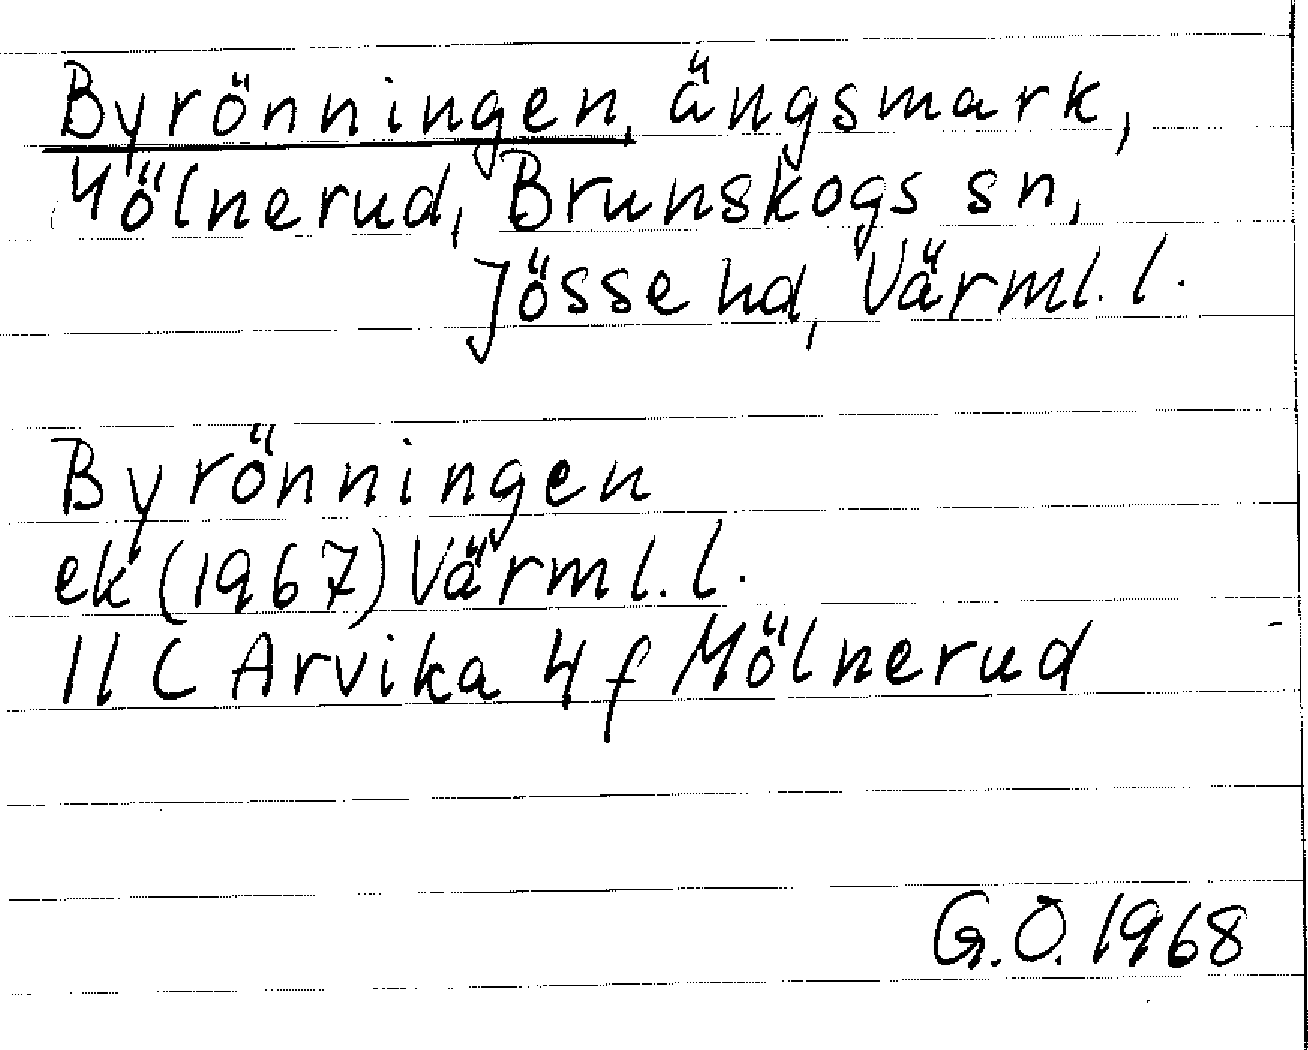 Byrönningen, ängsmark,
Mölnerud, Brunskogs sn,
Jösse hd, Värml. l.
Byrönningen
ek (1967) Värml. l.
11 C Arvika 4 f Mölnerud
G.O. 1968